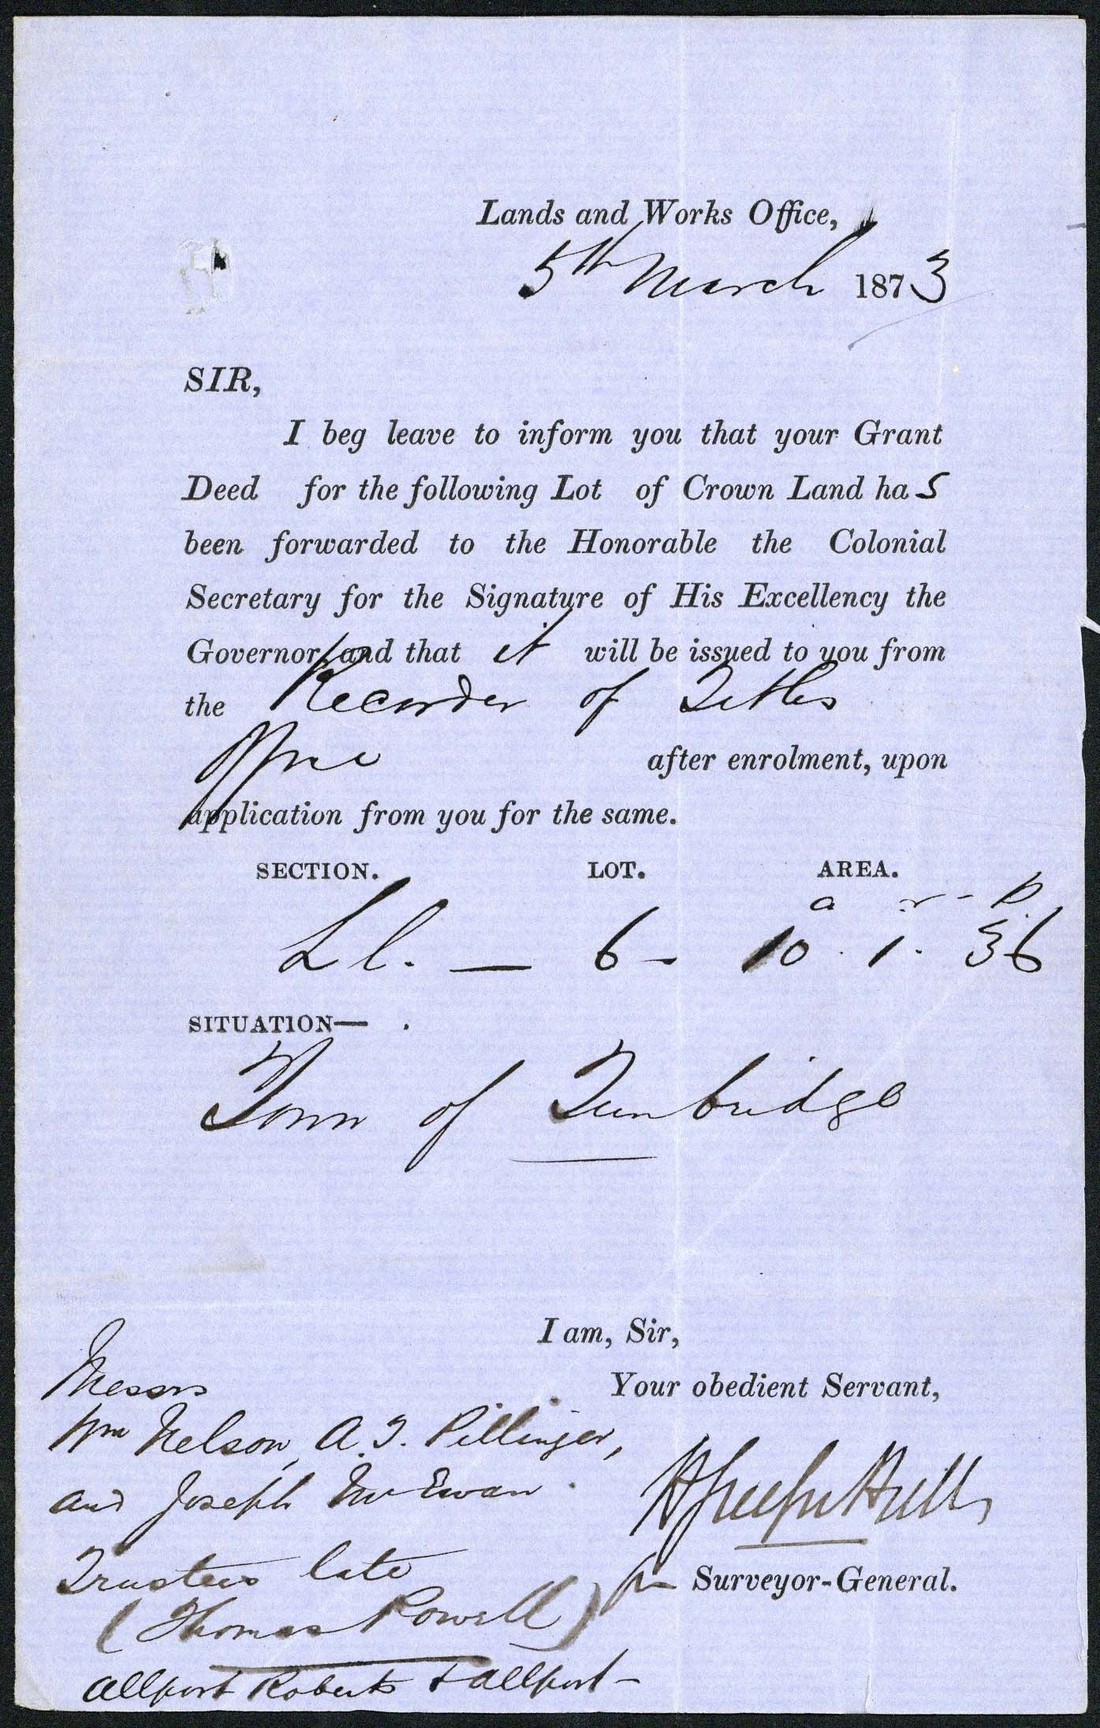 Lands and Works Office,
5th March 1873
SIR,
I beg leave to inform you that your Grant
Deed for the following Lot of Crown Land has
been forwarded to the Honorable the Colonial
Secretary for the Signature of His Excellency the
Governor, and that it will be issued to you from
the Recorder of Titles
Office after enrolment, upon
application from you for the same.
SECTION. LOT. AREA.
a r - p
L l. — 6 - 10 . 1 . 36
SITUATION— .
Town of Tunbridge
I am, Sir,
Your obedient Servant,
Messrs
Wm Nelson, A. J. Pillinger,
and Joseph McEwan
Hull
Trustees late
for Surveyor-General.
(Thomas Powell)
Allport Roberts & Allport -